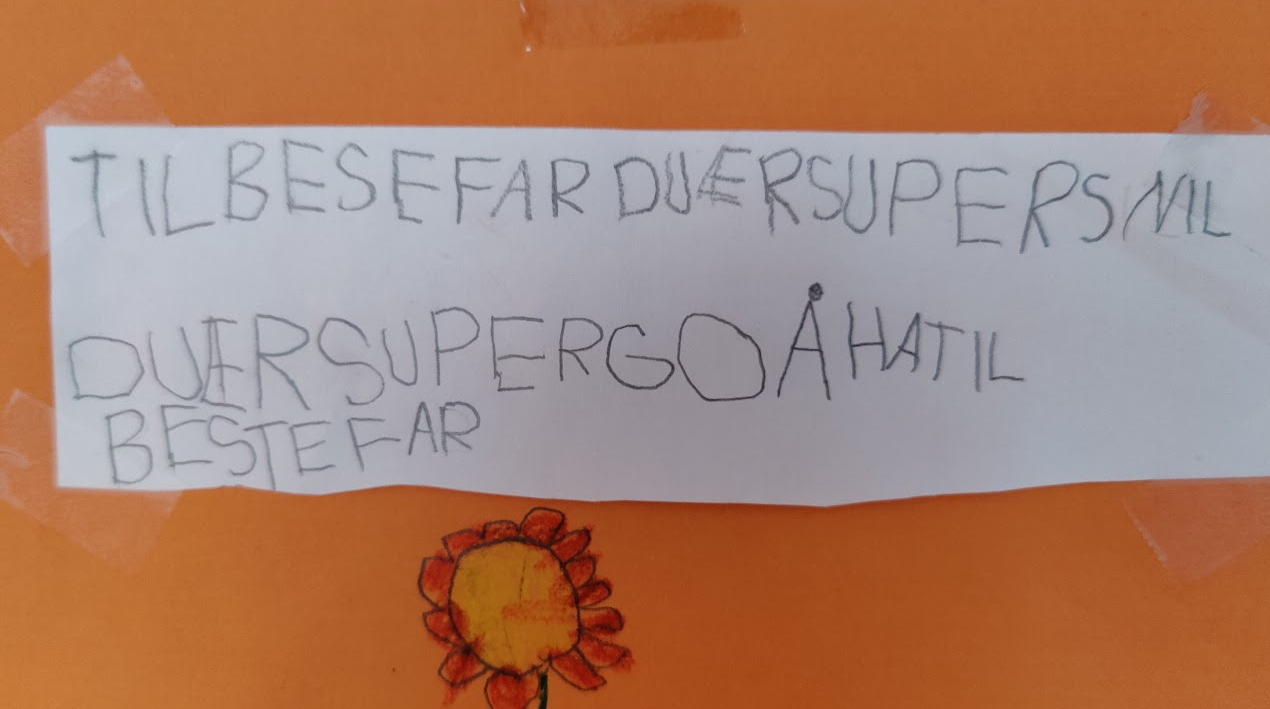 TIL BESEFAR DU ÆR SUPER SNIL
DU ÆR SUPER GO Å HA TIL
BESTEFAR